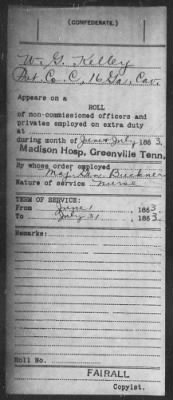 (CONFEDERATE.)
W. G. Kelley
Pvt. Co. C, 16 Ga. Cav.
Appears on a
ROLL
of non-commissioned officers and
privates employed on extra duty
at
during month of June & July 1863
Madison Hosp, Greenville Tenn,
By whose order employed
Maj. Gen. Buckner
Nature of service Nurse
TERM OF SERVICE:
From June 1, 1863.
To July 31, 1863.
Remarks:
Roll No.
FAIRALL
Copyist.